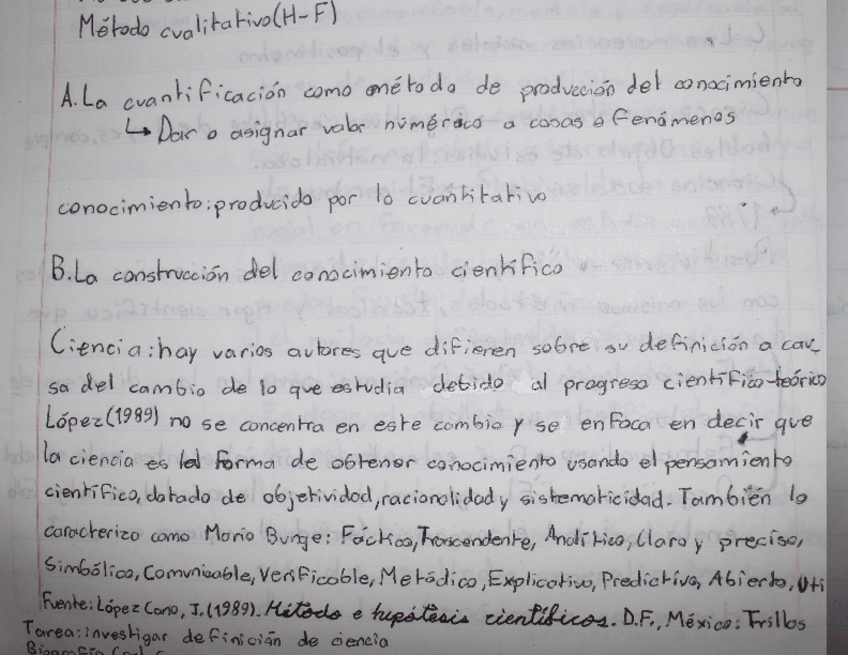 Método cualitativo (H-F)
A. La cuantificación como método de producción del conocimiento
↳ Dar o asignar valor numérico a cosas o fenómenos
conocimiento: producido por lo cuantitativo
B. La construcción del conocimiento científico
Ciencia: hay varios autores que difieren sobre su definición a cau
sa del cambio de lo que estudia debido al progreso científico-teórico
López (1989) no se concentra en este cambio y se enfoca en decir que
la ciencia es la forma de obtener conocimiento usando el pensamiento
científico, dotado de objetividad, racionalidad y sistematicidad. También lo
caracterizo como Mario Bunge: Fáctico, Trascendente, Analítico, Claro y preciso,
Simbólico, Comunicable, Verificable, Metódico, Explicativo, Predictivo, Abierto, Uti
Fuente: López Cano, J. (1989). Método e hipótesis científicos. D.F., México: Trillas
Tarea: investigar definición de ciencia